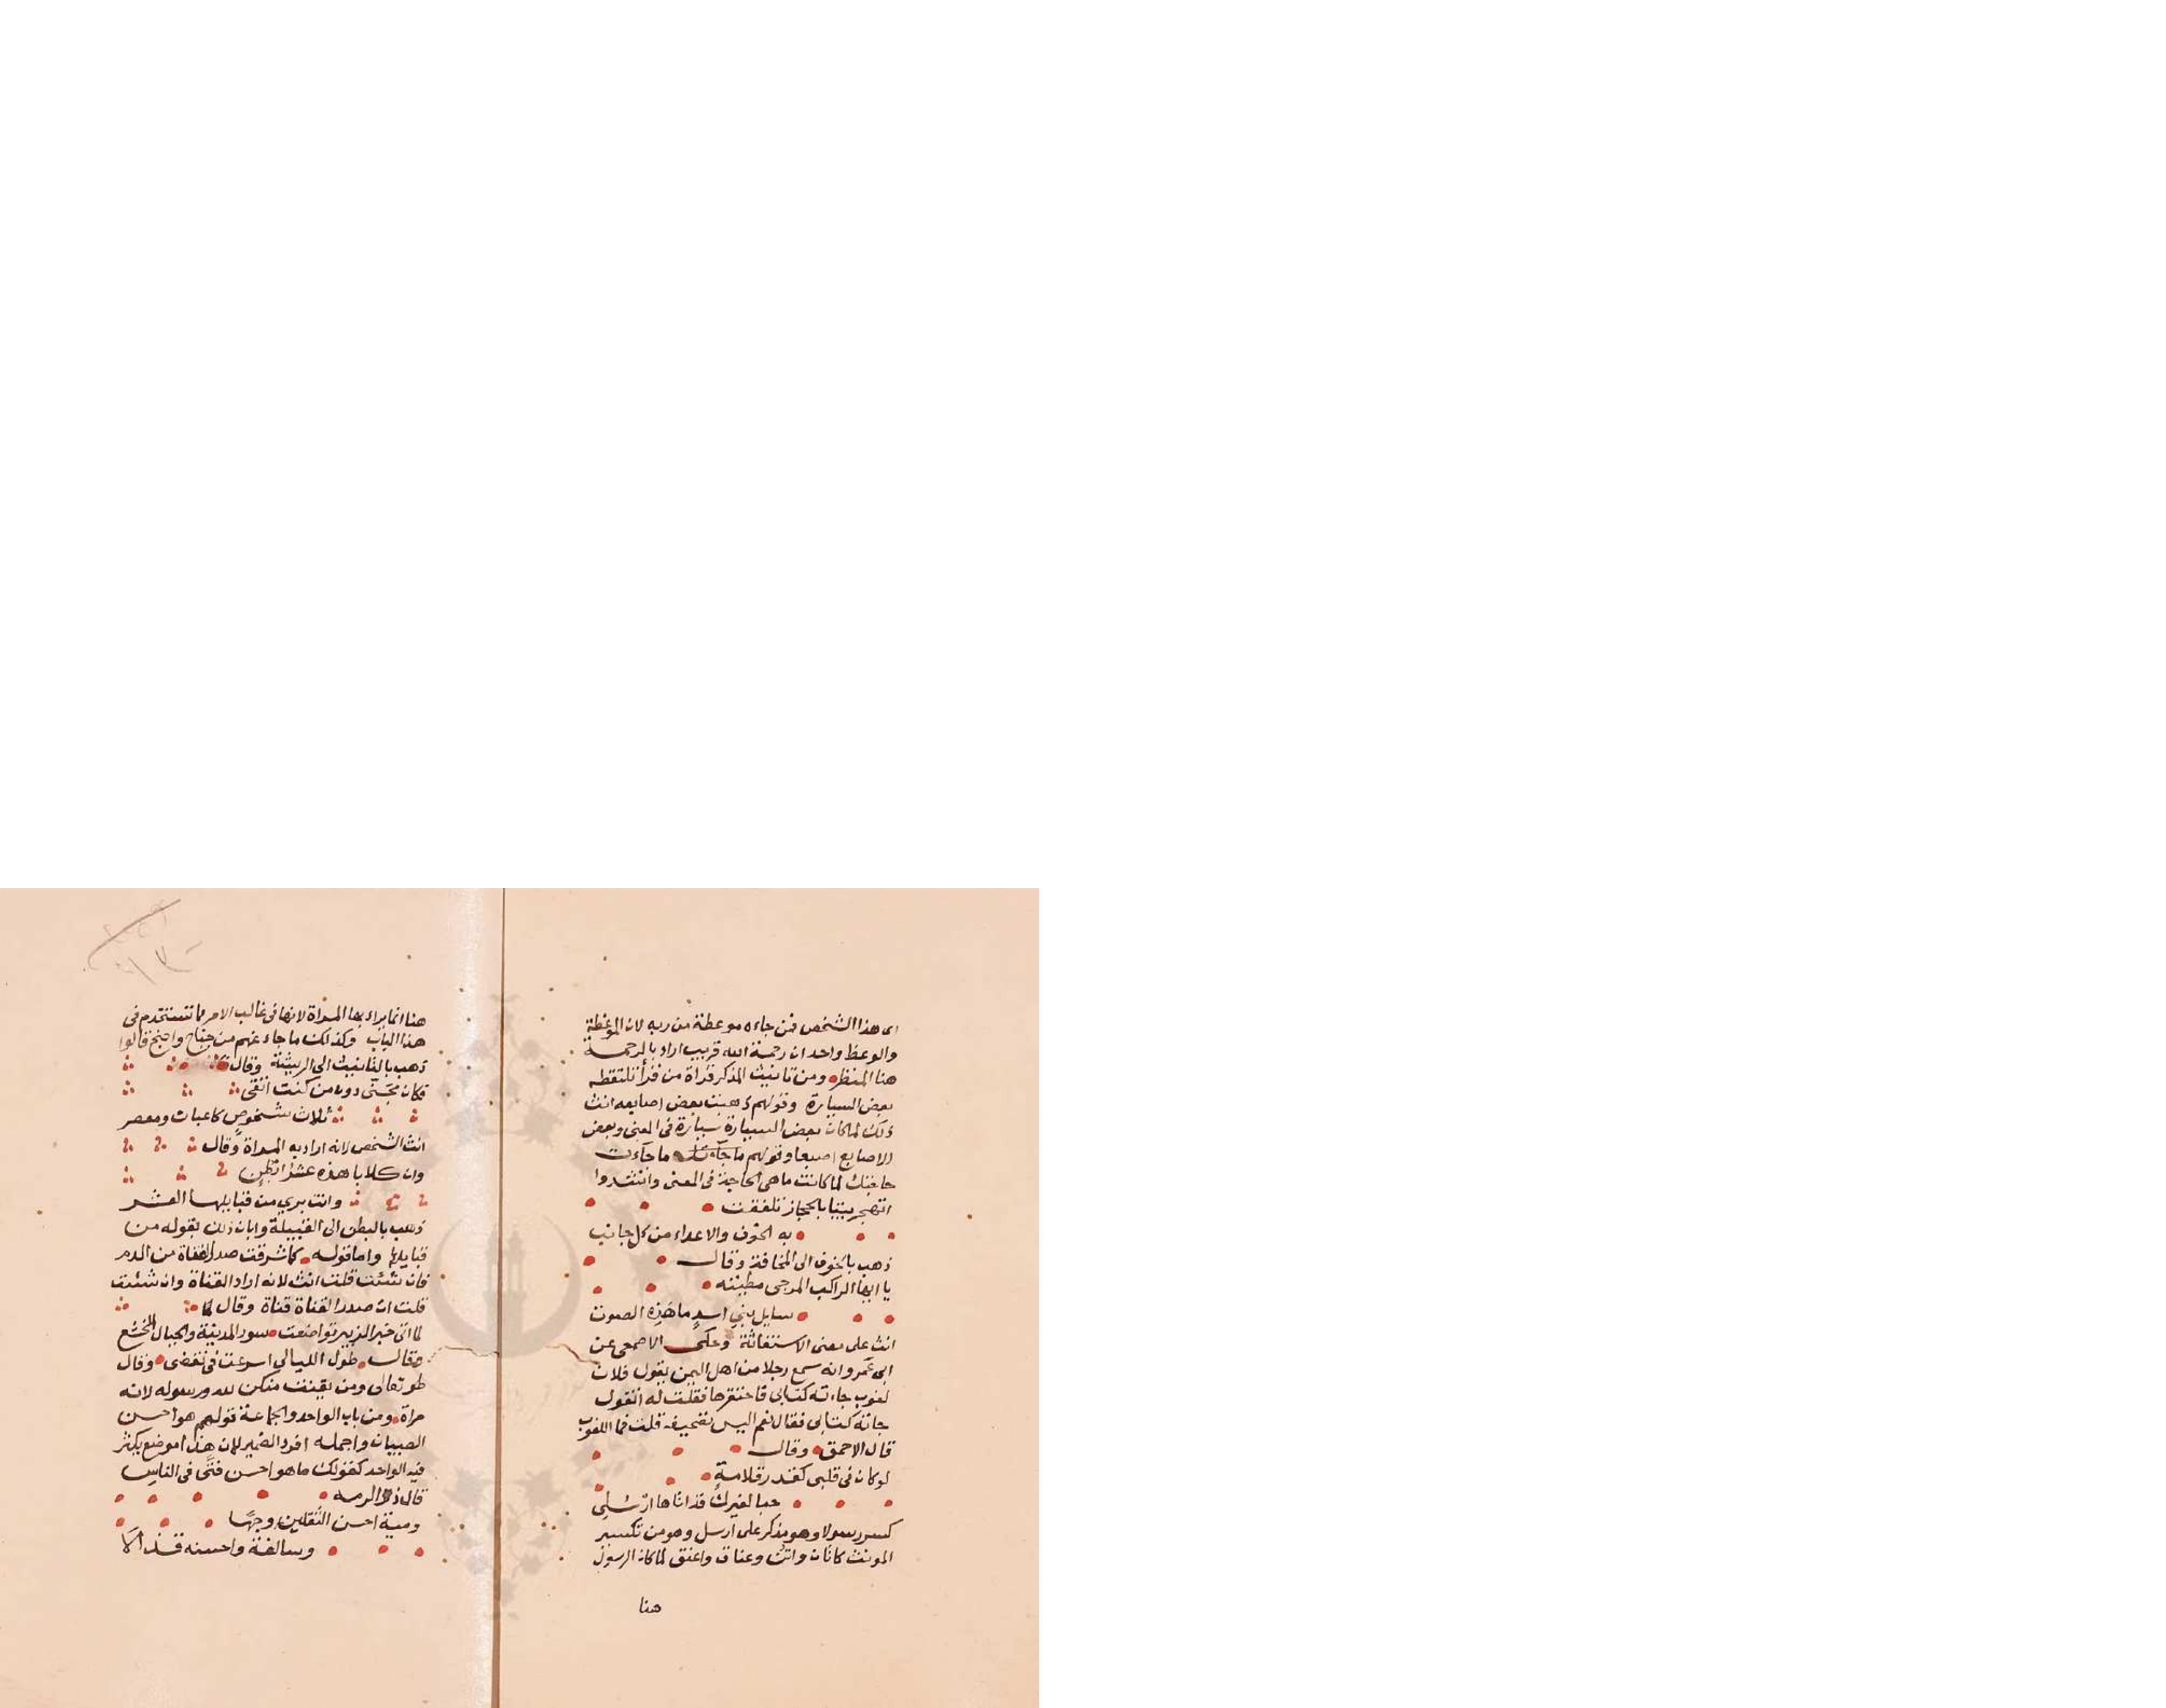 اى هذا الشخص فمن جاءه موعظة من ربه لان الموعظة
والوعظ واحد ان رحمة الله قريب اراد بالرحمة
هنا المنظر ومن تانيث المذكر قراة من قرأ تلتقطه
بعض السيارة وقولهم ذهبت بعض اصابعه انث
ذلك لما كان بعض السيارة سيارة فى المعنى وبعض
الاصابع اصبعا وقولهم ما جآءت
حاجتك لما كانت ما هى الحاجة فى المعنى وانشدوا
اتهجر بيتا بالحجاز تلففت
به الخوف والاعداء من كل جانب
ذهب بالخوف الى المخافة وقال
يا ايها الراكب المزجى مطيته
سايل بني اسدٍ ما هَذِه الصوت
انث على معنى الاستغاثة وحكى الاصمعى عن
ابى عمرو انه سمع رجلا من اهل اليمن يقول فلان
لغوب جاءته كتابى فاحتقرها فقلت له اتقول
جاته كتابى فقال نعم اليس بصحيفه قلت فما اللغوب
قال الاحمق وقال
لو كان فى قلبى كقدر قلامة
حبا لغيرك قد اتاها ارسُلى
كسر رسولا وهو مذكر على ارسل وهو من تكسير
المونث كاتان واتن وعناق واعنق لما كان الرسول
هنا
هنا انما يراد بها المراة لانها فى غالب الامر مما تستخدم فى
هذا الباب وكذلك ما جاء عنهم من جناح واجنح قالوا
ذهب بالتانيث الى الريشة وقال
فكان مجنى دون من كنت اتقى
ثلاث شخوصٍ كاعبات ومعصر
انث الشخص لانه اراد به المراة وقال
وان كلابا هذه عشر ابطن
وانت برى من قبايلها العشر
ذهب بالبطن الى القبيلة وابان ذلك بقوله من
قبايلها واما قوله كما شرقت صدر القناة من الدم
فان شئت قلت انث لانه اراد القناة وان شئت
قلت ان صدر القناة قناة وقال
لما اتى خبر الزبير تواضعت سور المدينة والجبال الخشع
وقال طول الليالى اسرعت فى نقضى وقال
تعالى ومن يقنت منكن لله ورسوله لانه
مراة ومن باب الواحد والجماعة قولهم هو احسن
الصبيان واجمله افرد الضمير لان هذا موضع يكثر
فيه الواحد كقولك ما هو احسن فتًى فى الناس
قال ذو الرمه
ومية احسن الثقلين وجهًا
وسالفة واحسنه قذالا